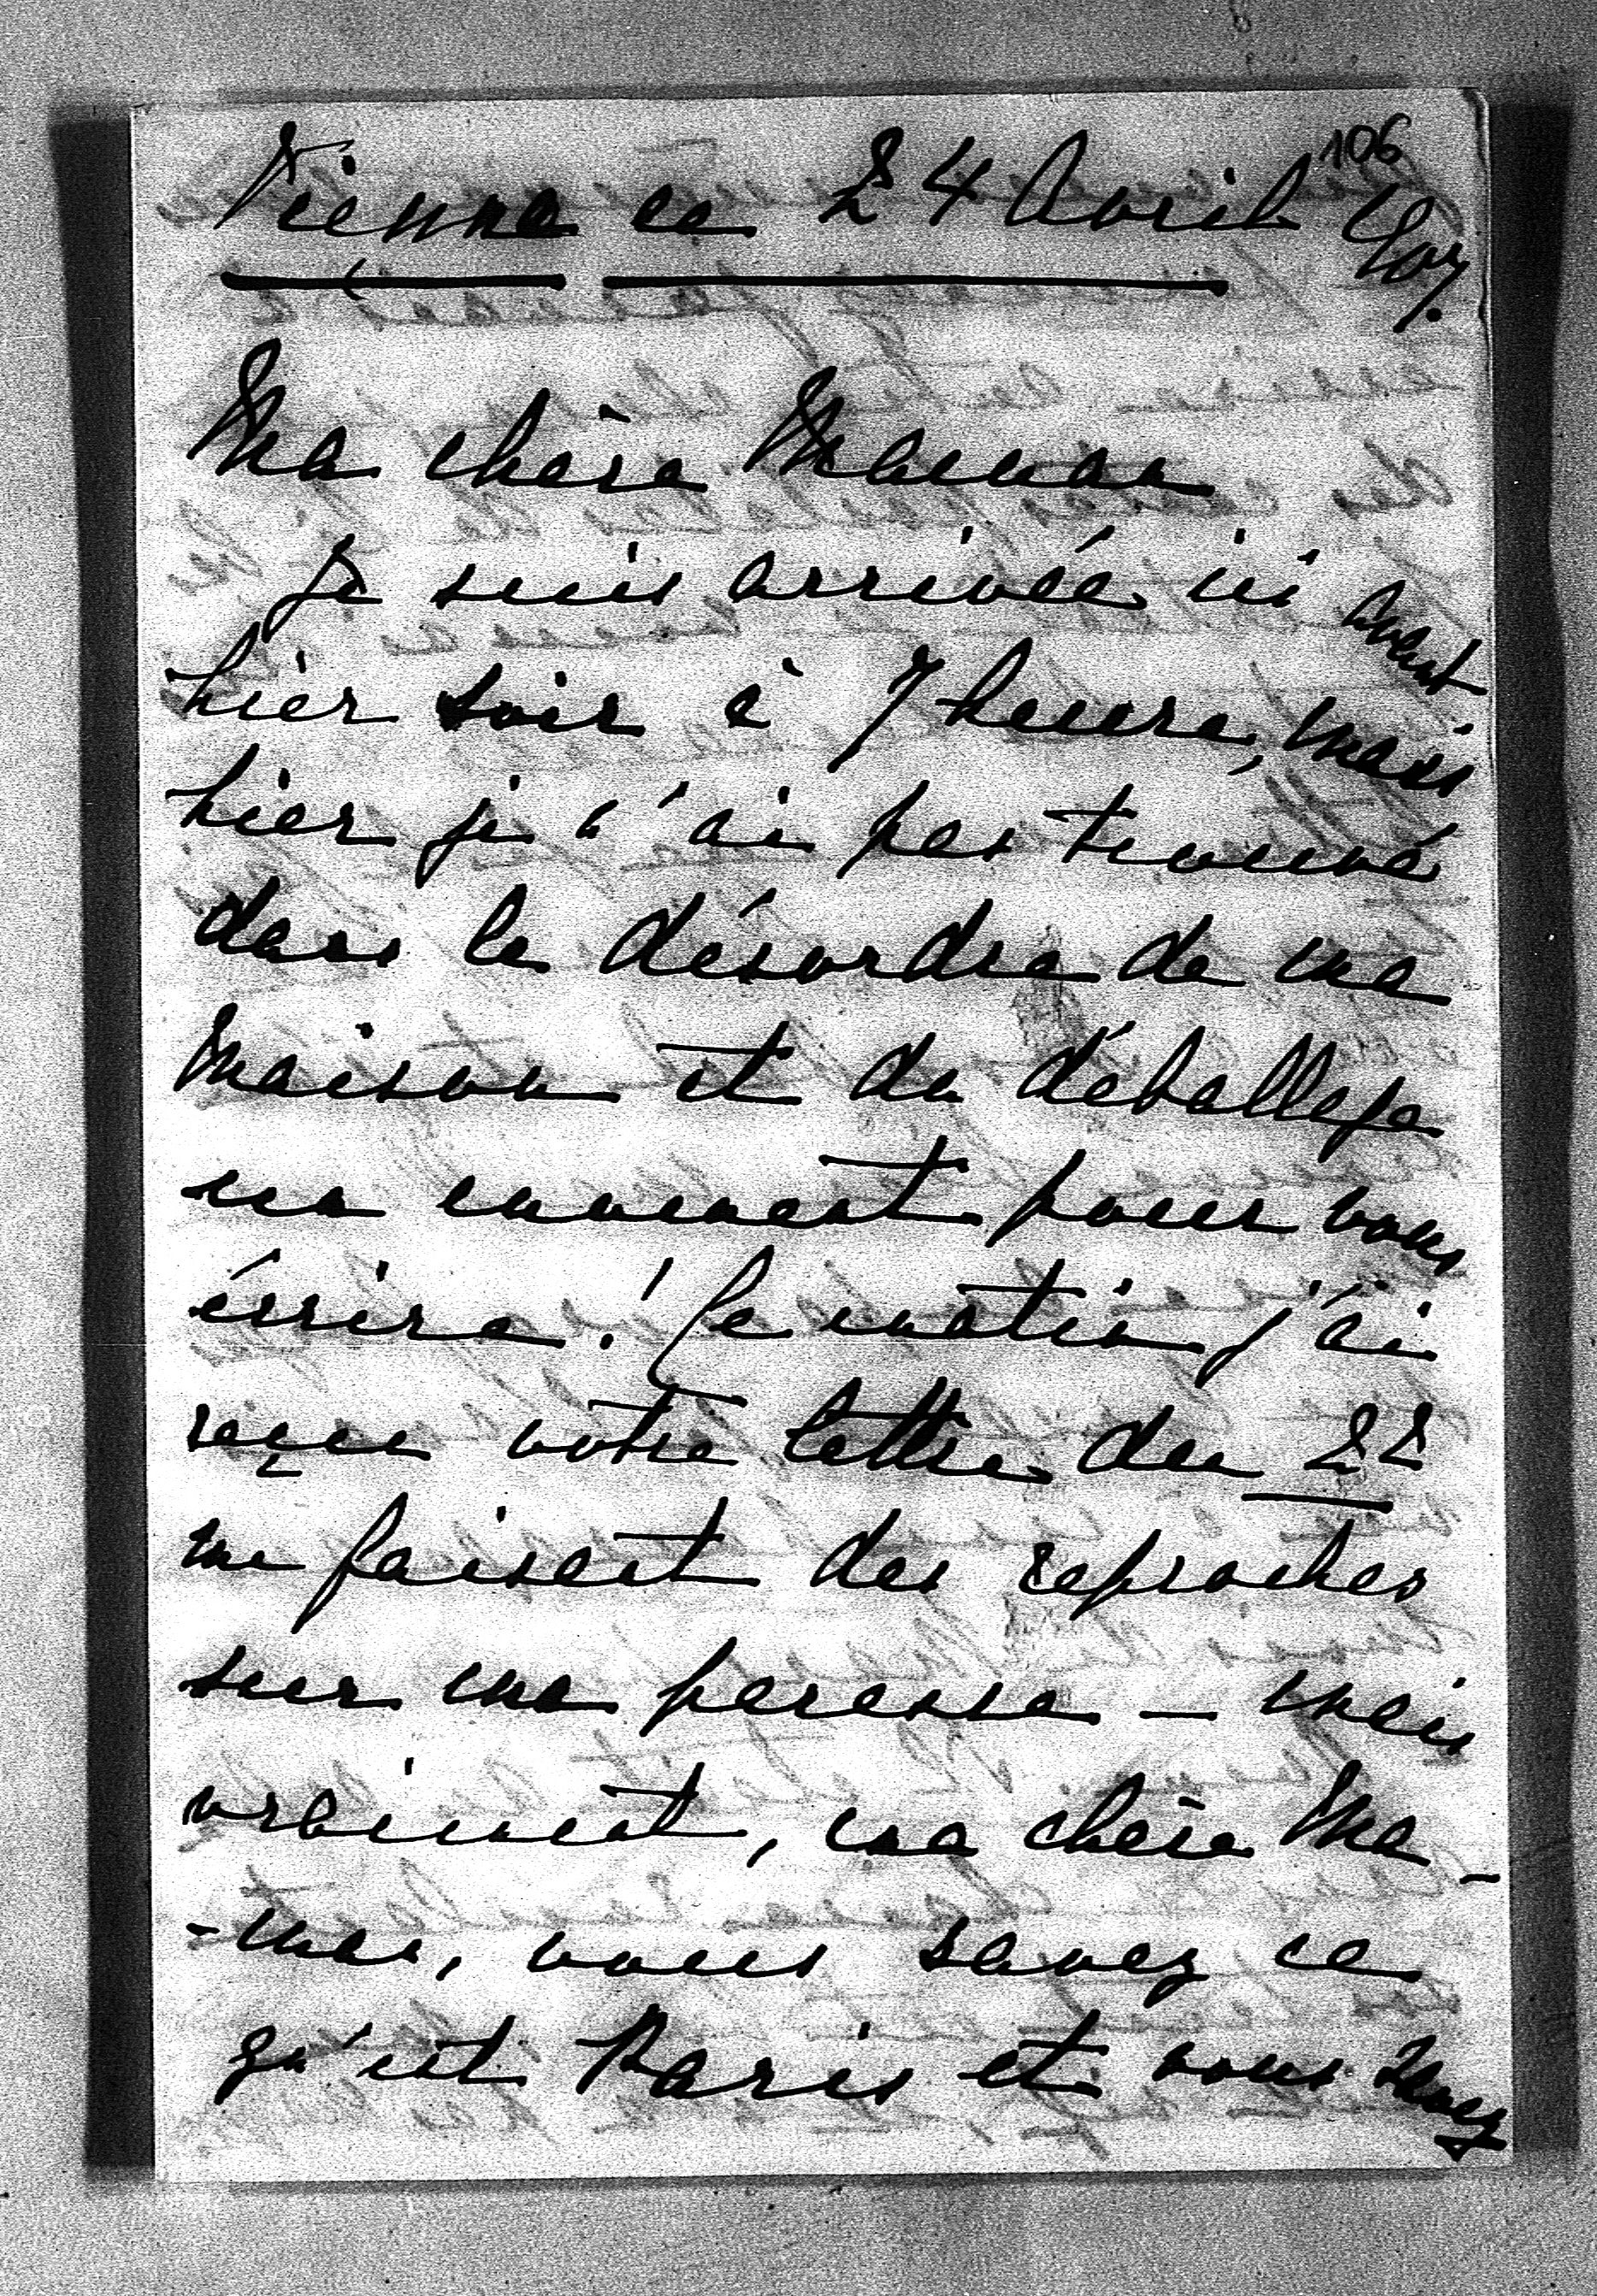 106
Vienne ce 24 Avril 1907.
Ma chère Maman
Je suis arrivée ici avant
hier soir à 7 heure, mais
hier je n'ai pas trouvé
dans le désordre de ma
maison et du déballage
un moment pour vous
écrire! Ce matin j'ai
reçue votre lettre du 22
me faisant des reproches
sur ma paresse – mais
vraiment, ma chère Ma-
-man, vous savez ce
qu'est Paris et vous savez